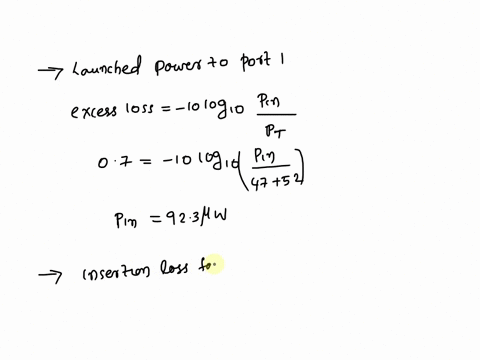 → Launched power to port 1
excess loss = -10 log10 Pin / PT
0.7 = -10 log10 (Pin / 47+52)
Pin = 92.3 μW
→ insertion loss fo